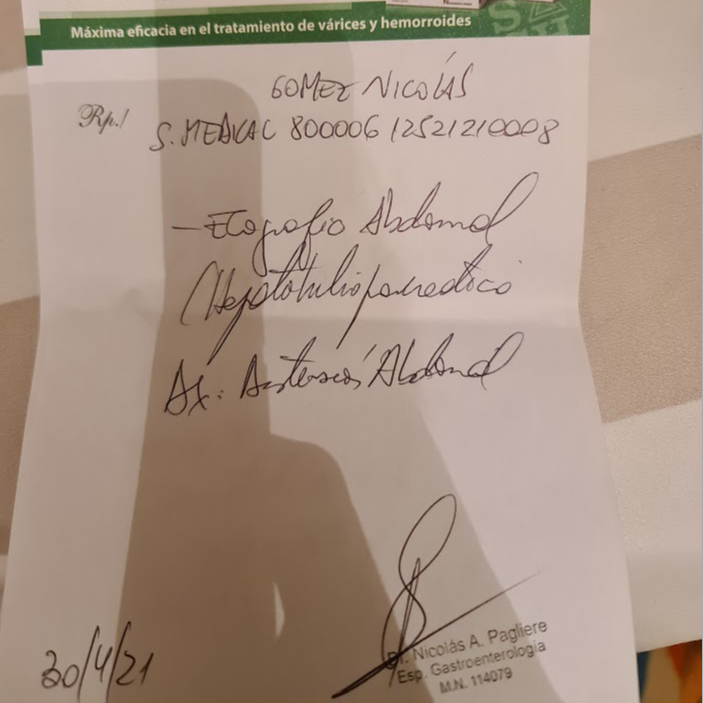 Máxima eficacia en el tratamiento de várices y hemorroides
GOMEZ NICOLÁS
Rp./
S. MEDICAL 800006 12521210008
- Ecografia Abdominal
(Hepatobiliopancreatica
Dx: Distension Abdominal
30/4/21
Dr. Nicolás A. Pagliere
Esp. Gastroenterología
M.N. 114079